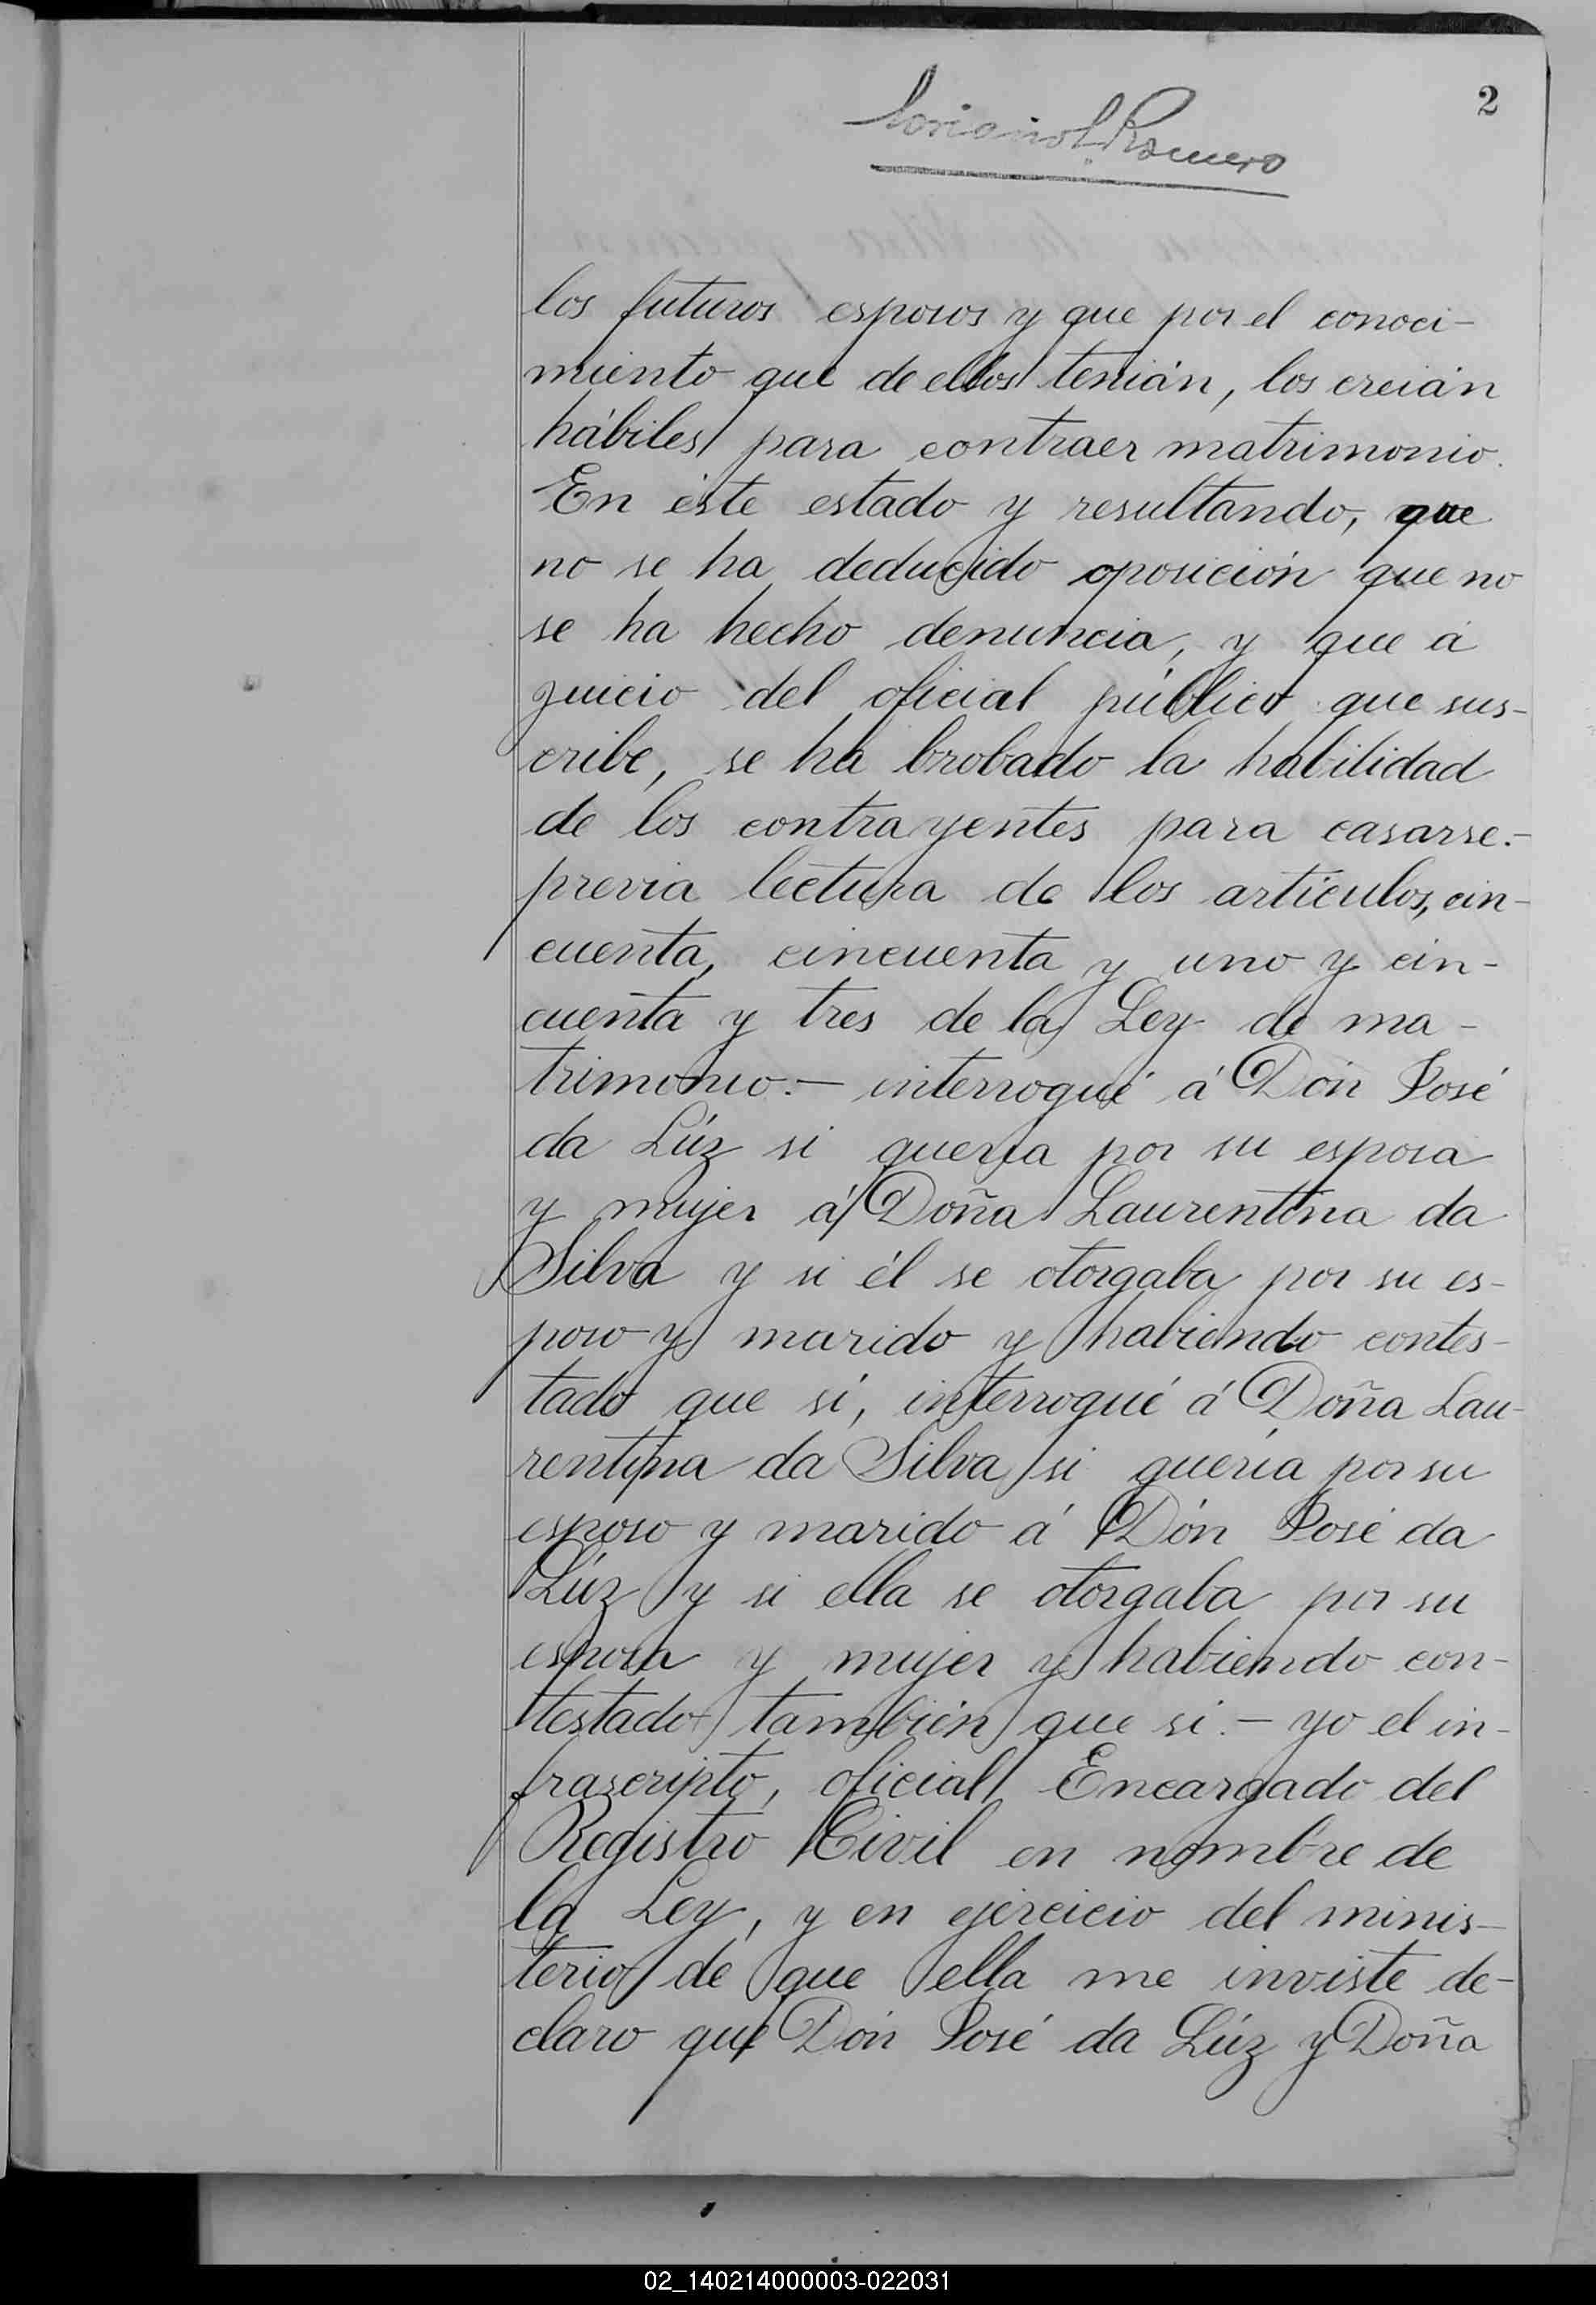 2
Romero
los futuros esposos y que por el conoci-
miento que de ellos tenián, los creián
hábiles para contraer matrimonio.
En éste estado y resultando, que
no se ha deducido oposición que no
se ha hecho denuncia, y que á
juicio del oficial público que sus-
cribe, se há brobado la habilidad
de los contrayentes para casarse.-
previa lectura de los artículos, cin-
cuenta, cincuenta y uno y cin-
cuenta y tres de la Ley de ma-
trimonio.- interrogué á Dón José
da Lúz si quería por su esposa
y mujer á Doña Laurentina da
Silva y si él se otorgaba por su es-
poso y marido y habiendo contes-
tado que sí, interrogué á Doña Lau-
rentina da Silva si quería por su
esposo y marido á Dón José da
Lúz y si ella se otorgaba por su
esposa y mujer y habiendo con-
testado también que si.- yo el in-
frascripto, oficial Encargado del
Registro Civil en nombre de
la Ley, y en ejercicio del minis-
terio de que ella me inviste de-
claro que Dón José da Lúz y Doña
02_140214000003-022031